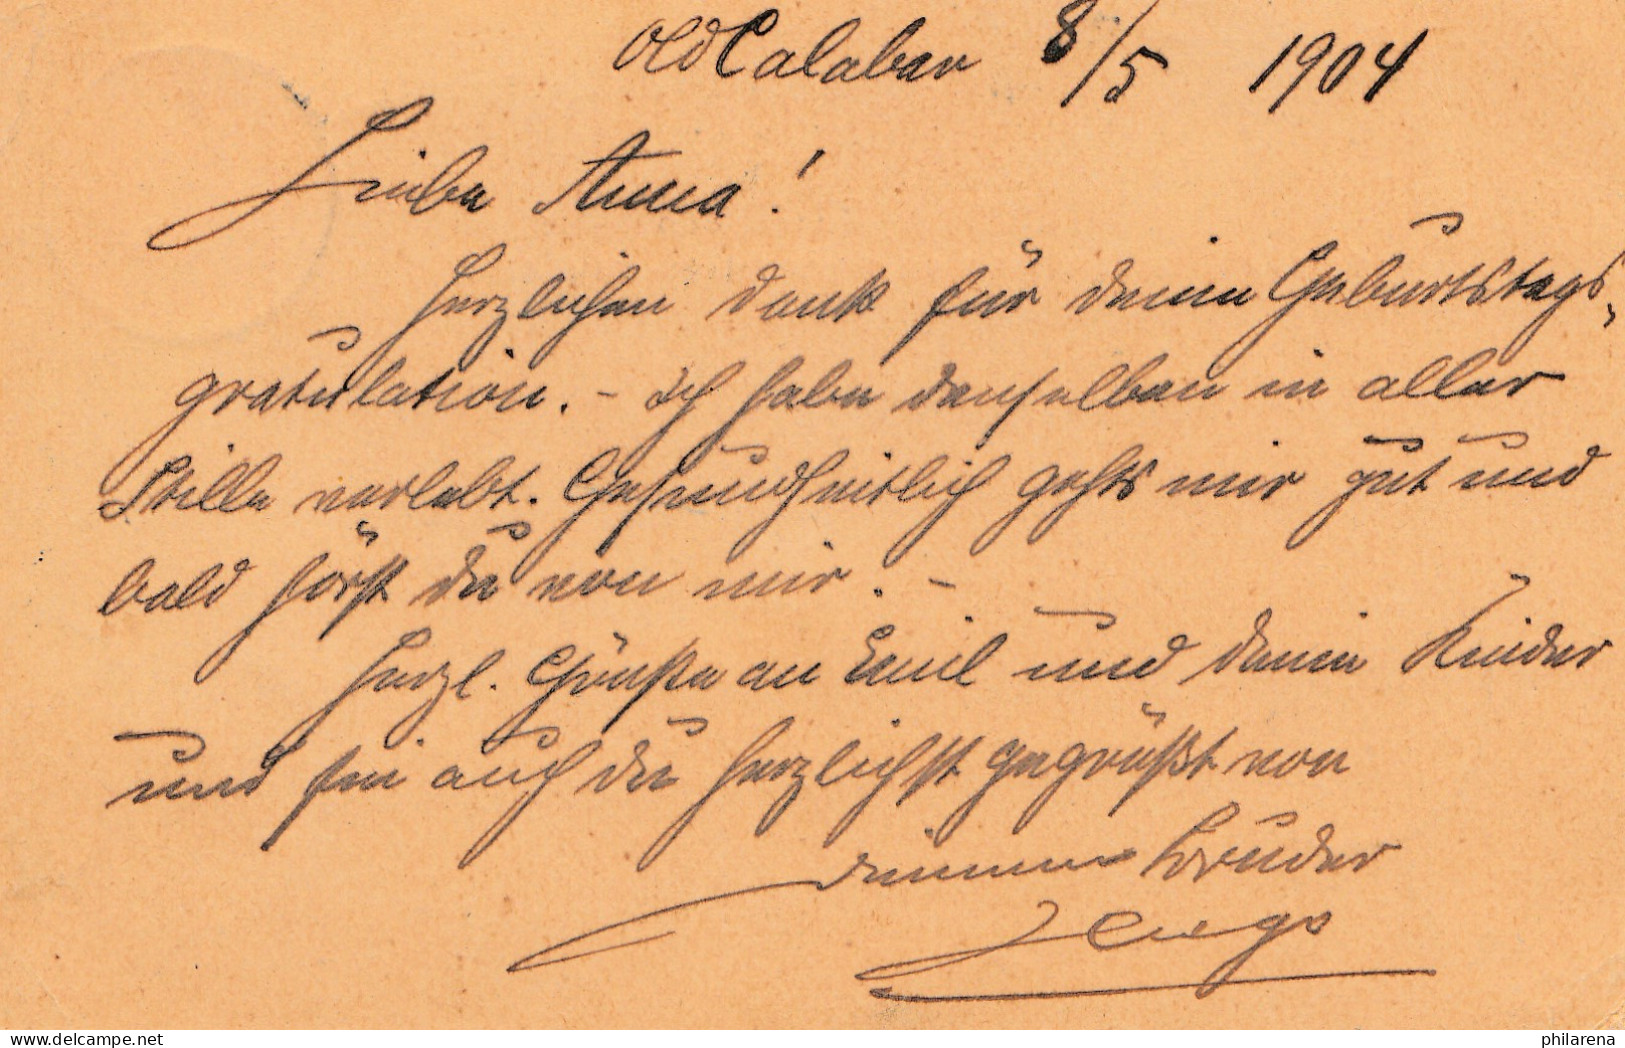 Old Calabar 8/5 1904
Liebe Anna!
Herzlichen dank für deine Geburtstags-
gratulation. - Ich habe denselben in aller
Stille verlebt. Gesundheitlich gehts mir gut und
bald hörst du von mir. -
Herzl. Grüße an Emil und deine Kinder
und sei auch du herzlichst gegrüßt von
deinem Bruder
Hugo
www.delcampe.net
philarena